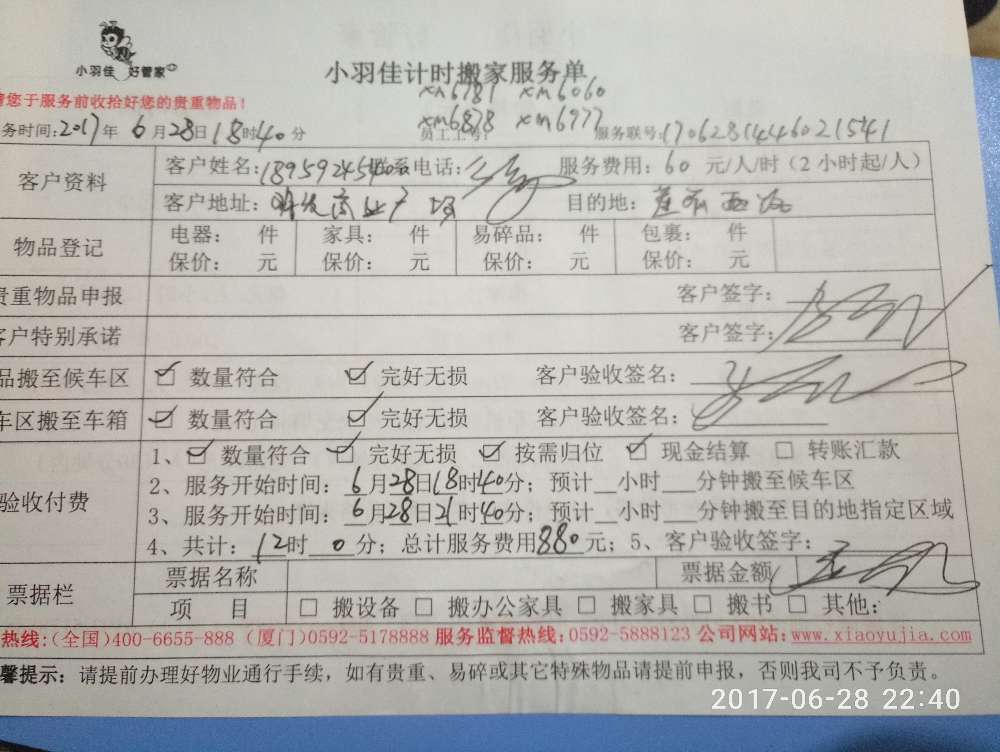 小羽佳 好管家
小羽佳计时搬家服务单
请您于服务前收拾好您的贵重物品!
xm6781 xm6060
xm6878 xm6977
务时间:2017年6月28日18时40分 员工工号: 服务联号:1706281446021541
客户资料
客户姓名: 联系电话: 服务费用:60元/人/时(2小时起/人)
客户地址:明发商业广场 目的地:
物品登记
电器: 件 家具: 件 易碎品: 件 包裹: 件
保价: 元 保价: 元 保价: 元 保价: 元
贵重物品申报 客户签字:
客户特别承诺 客户签字:
品搬至候车区 ☑ 数量符合 ☑ 完好无损 客户验收签名:
车区搬至车箱 ☑ 数量符合 ☑ 完好无损 客户验收签名:
验收付费
1、☑ 数量符合 ☑ 完好无损 ☑ 按需归位 ☑ 现金结算 □ 转账汇款
2、服务开始时间:6月28日18时40分;预计__小时___分钟搬至候车区
3、服务开始时间:6月28日21时40分;预计__小时___分钟搬至目的地指定区域
4、共计:12时0分;总计服务费用880元;5、客户验收签字:
票据栏
票据名称 票据金额
项 目 □ 搬设备 □ 搬办公家具 □ 搬家具 □ 搬书 □ 其他:
热线:(全国)400-6655-888(厦门)0592-5178888 服务监督热线:0592-5888123 公司网站:www.xiaoyujia.com
馨提示:请提前办理好物业通行手续,如有贵重、易碎或其它特殊物品请提前申报,否则我司不予负责。
2017-06-28 22:40